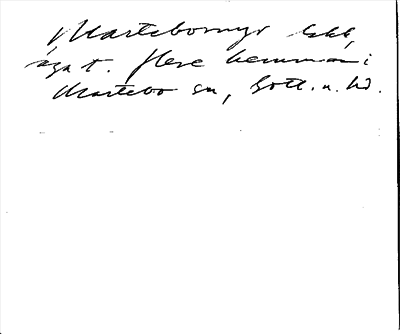 Martebomyr ebbl,
äga t. flere hemman i
Martebo sn, Gotl. n. hd.